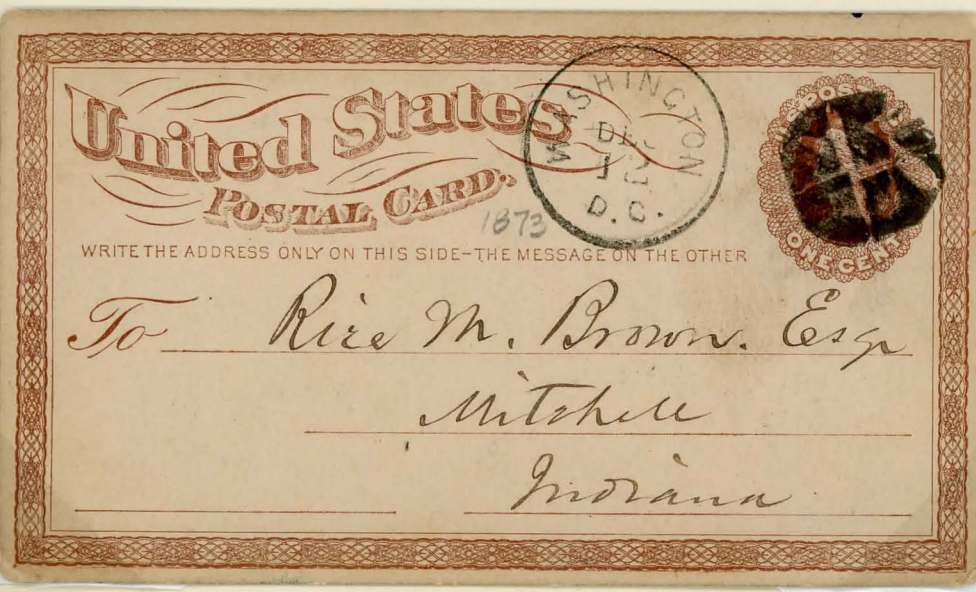 United States
POSTAL CARD.
WASHINGTON
DEC
1
D.C.
U.S. POSTAGE
ONE CENT
1873
WRITE THE ADDRESS ONLY ON THIS SIDE-THE MESSAGE ON THE OTHER
To Rice M. Brown. Esq
Mitchell
Indiana